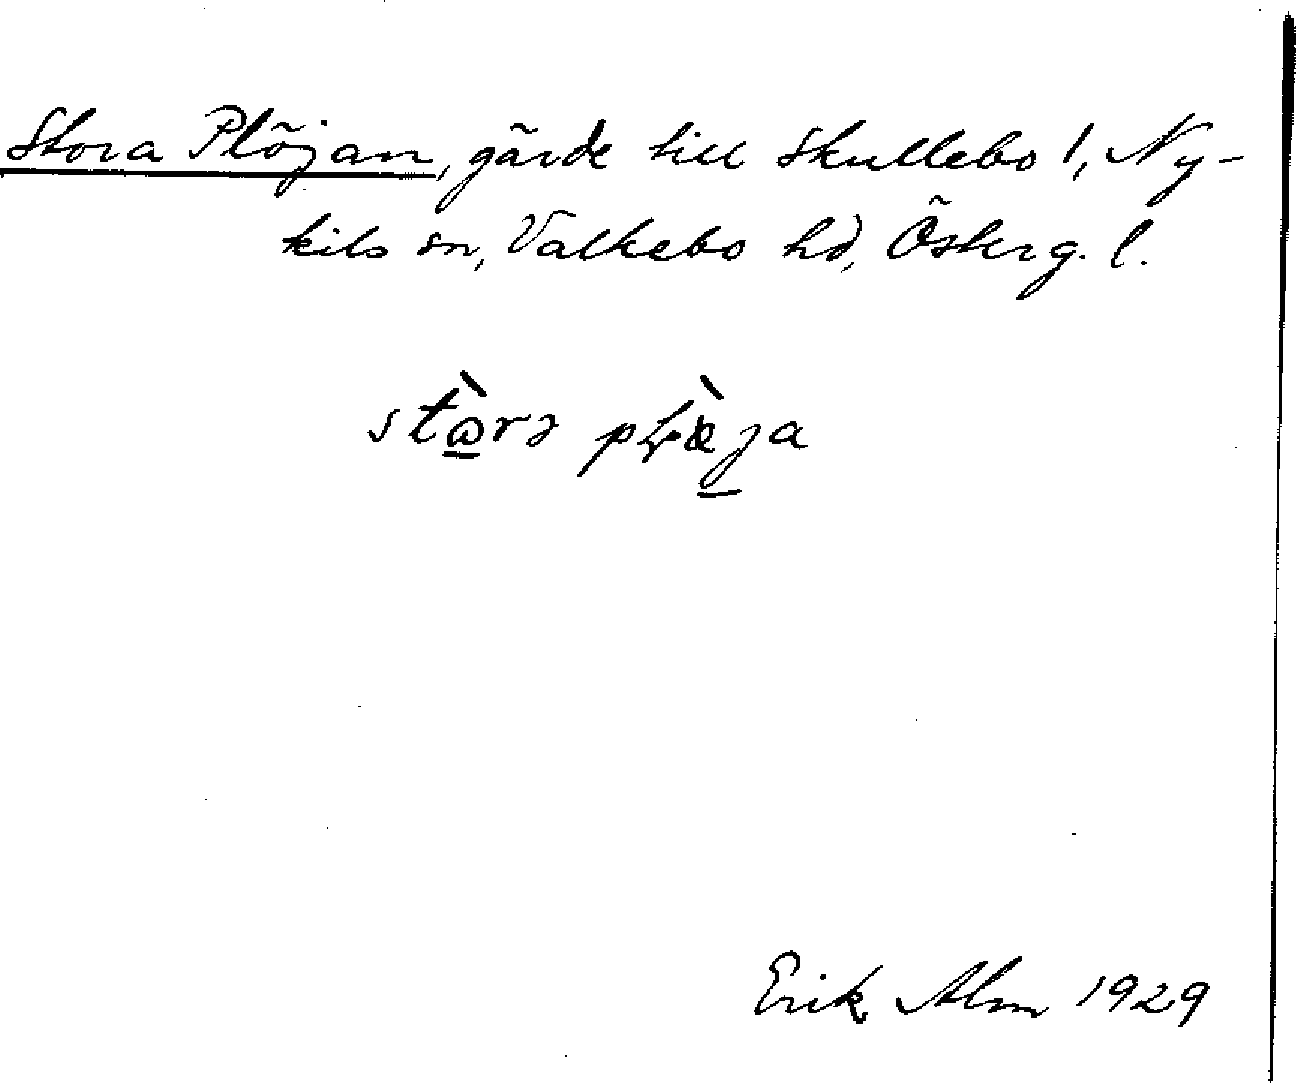 Stora Plöjan, gärde till Skullebo 1, Ny-
kils sn, Valkebo hd, Österg. l.
Erik Alm 1929